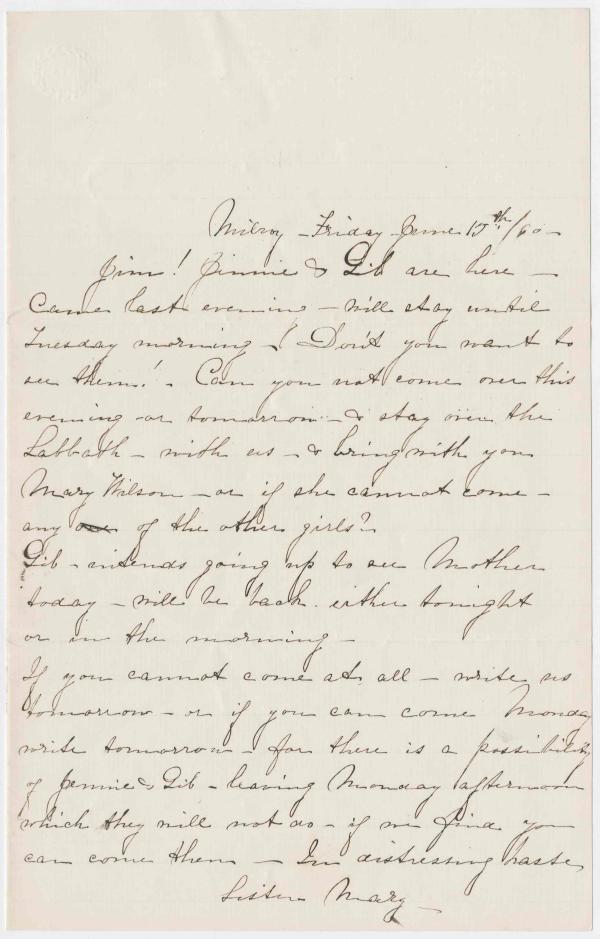 Milroy - Friday June 15th/60 -
Jim! Jinnie & Gib are here -
Came last evening - will stay until
Tuesday morning -! Don't you want to
see them! - Can you not come over this
evening or tomorrow - & stay over the
Sabbath - with us - & bring with you
Mary Wilson - or if she cannot come -
any one of the other girls?
Gib - intends going up to see Mother
today - will be back either tonight
or in the morning -
If you cannot come at all - write us
tomorrow - or if you can come Monday
write tomorrow - for there is a possibility
of Jennie & Gib - leaving Monday afternoon
which they will not do - if we find you
can come then - In distressing haste
Sister Mary -